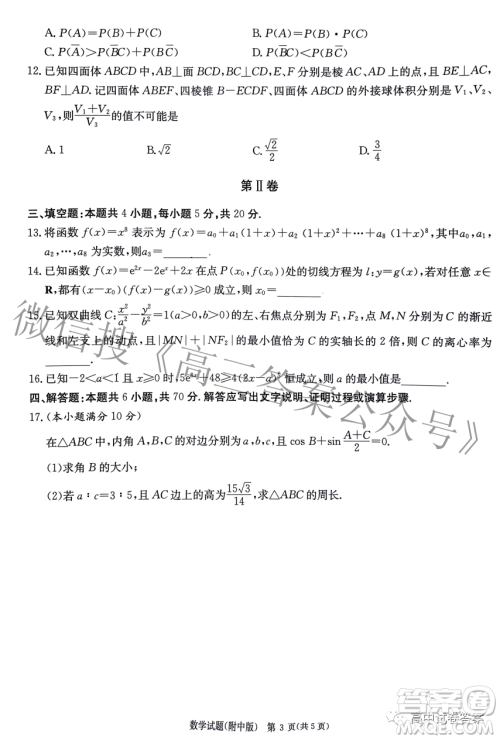 A. P(A)=P(B)+P(C)
B. P(A)=P(B)·P(C)
C. P(A̅)>P(B̅C)+P(BC̅)
D. P(A̅)<P(B̅C)+P(BC̅)
12. 已知四面体 ABCD 中,AB⊥面 BCD,BC⊥CD,E、F 分别是棱 AC、AD 上的点,且 BE⊥AC,
BF⊥AD. 记四面体 ABEF、四棱锥 B-ECDF、四面体 ABCD 的外接球体积分别是 V₁、V₂、
V₃,则(V₁+V₂)/V₃的值不可能是
A. 1
B. √2
C. √2/2
D. 3/4
第Ⅱ卷
三、填空题:本题共 4 小题,每小题 5 分,共 20 分.
13. 将函数 f(x)=x⁸ 表示为 f(x)=a₀+a₁(1+x)+a₂(1+x)²+⋯+a₈(1+x)⁸,其中a₀,a₁,
a₂,⋯,a₈ 为实数,则a₃=
14. 已知函数 f(x)=e²ˣ-2eˣ+2x 在点 P(x₀,f(x₀))处的切线方程为 l:y=g(x),若对任意 x∈
R,都有(x-x₀)(f(x)-g(x))≥0 成立,则 x₀=
15. 已知双曲线 C:x²/a²-y²/b²=1(a>0,b>0)的左、右焦点分别为 F₁,F₂,点 M,N 分别为 C 的渐近
线和左支上的动点,且|MN|+|NF₂|的最小值恰为 C 的实轴长的 2 倍,则 C 的离心率为
16. 已知-2<a<1 且 x≥0 时,5eˣ-48≤4(2x-a)²恒成立,则 a 的最小值是
四、解答题:本题共 6 小题,共 70 分. 解答应写出文字说明、证明过程或演算步骤.
17. (本小题满分 10 分)
在△ABC 中,内角 A,B,C 的对边分别为 a,b,c,且 cos B+sin (A+C)/2=0.
(1)求角 B 的大小;
(2)若 a∶c=3∶5,且 AC 边上的高为15√3/14,求△ABC 的周长.
微信搜《高三答案公众号》
数学试题(附中版) 第 3 页(共 5 页)
高中试卷答案